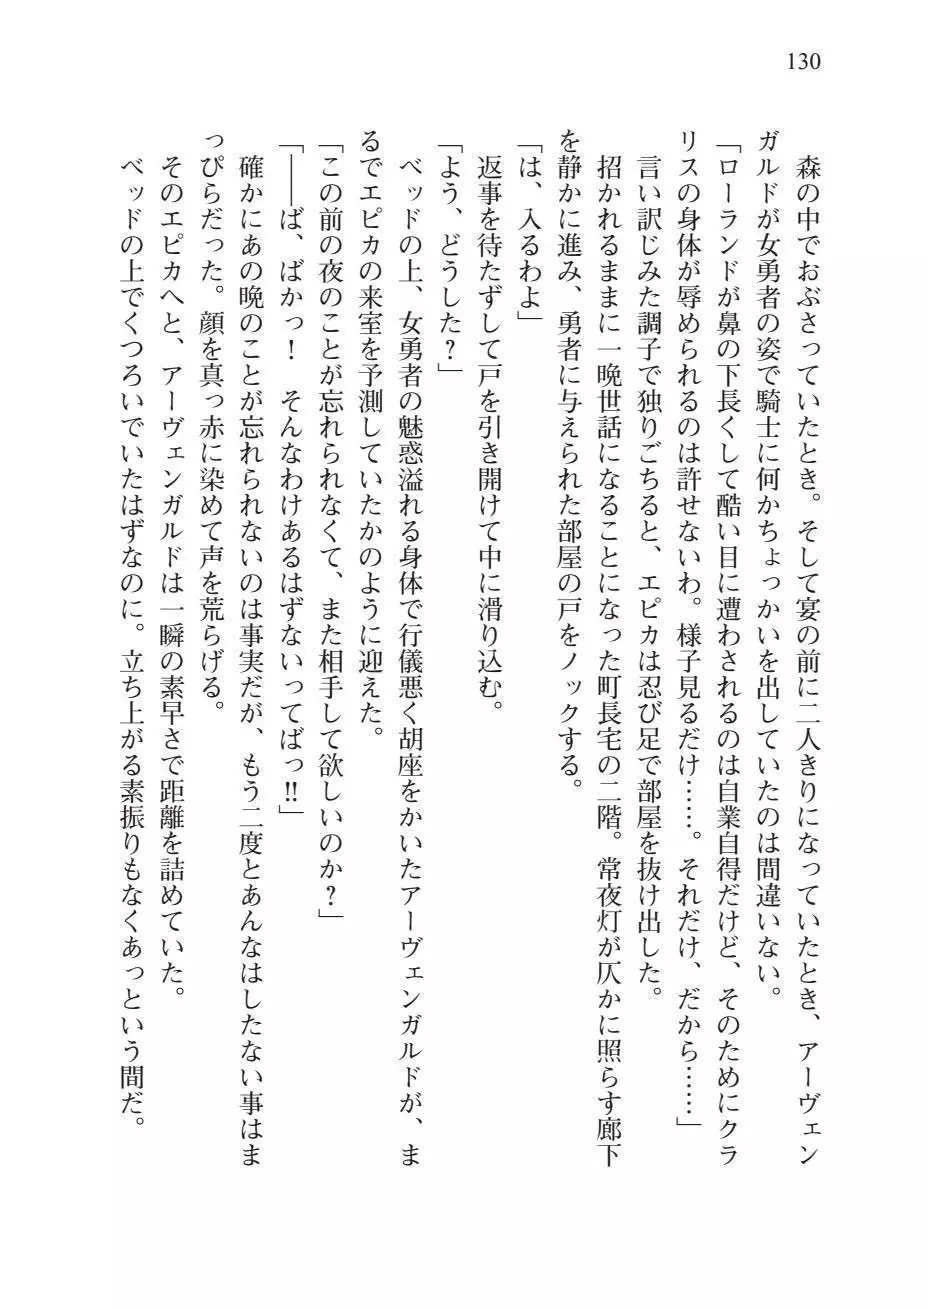 130
森の中でおぶさっていたとき。そして宴の前に二人きりになっていたとき、アーヴェン
ガルドが女勇者の姿で騎士に何かちょっかいを出していたのは間違いない。
「ローランドが鼻の下長くして酷い目に遭わされるのは自業自得だけど、そのためにクラ
リスの身体が辱められるのは許せないわ。様子見るだけ……。それだけ、だから……」
言い訳じみた調子で独りごちると、エピカは忍び足で部屋を抜け出した。
招かれるままに一晩世話になることになった町長宅の二階。常夜灯が仄かに照らす廊下
を静かに進み、勇者に与えられた部屋の戸をノックする。
「は、入るわよ」
返事を待たずして戸を引き開けて中に滑り込む。
「よう、どうした？」
ベッドの上、女勇者の魅惑溢れる身体で行儀悪く胡座をかいたアーヴェンガルドが、ま
るでエピカの来室を予測していたかのように迎えた。
「この前の夜のことが忘れられなくて、また相手して欲しいのか？」
「――ば、ばかっ！　そんなわけあるはずないってばっ‼」
確かにあの晩のことが忘れられないのは事実だが、もう二度とあんなはしたない事はま
っぴらだった。顔を真っ赤に染めて声を荒らげる。
そのエピカへと、アーヴェンガルドは一瞬の素早さで距離を詰めていた。
ベッドの上でくつろいでいたはずなのに。立ち上がる素振りもなくあっという間だ。